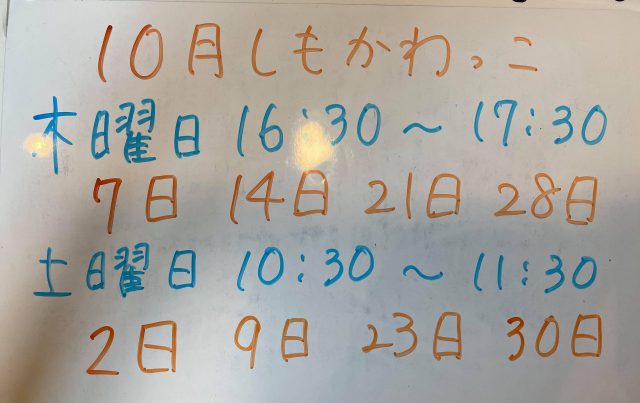 10月しもかわっこ
木曜日 16:30～17:30
7日 14日 21日 28日
土曜日 10:30～11:30
2日 9日 23日 30日